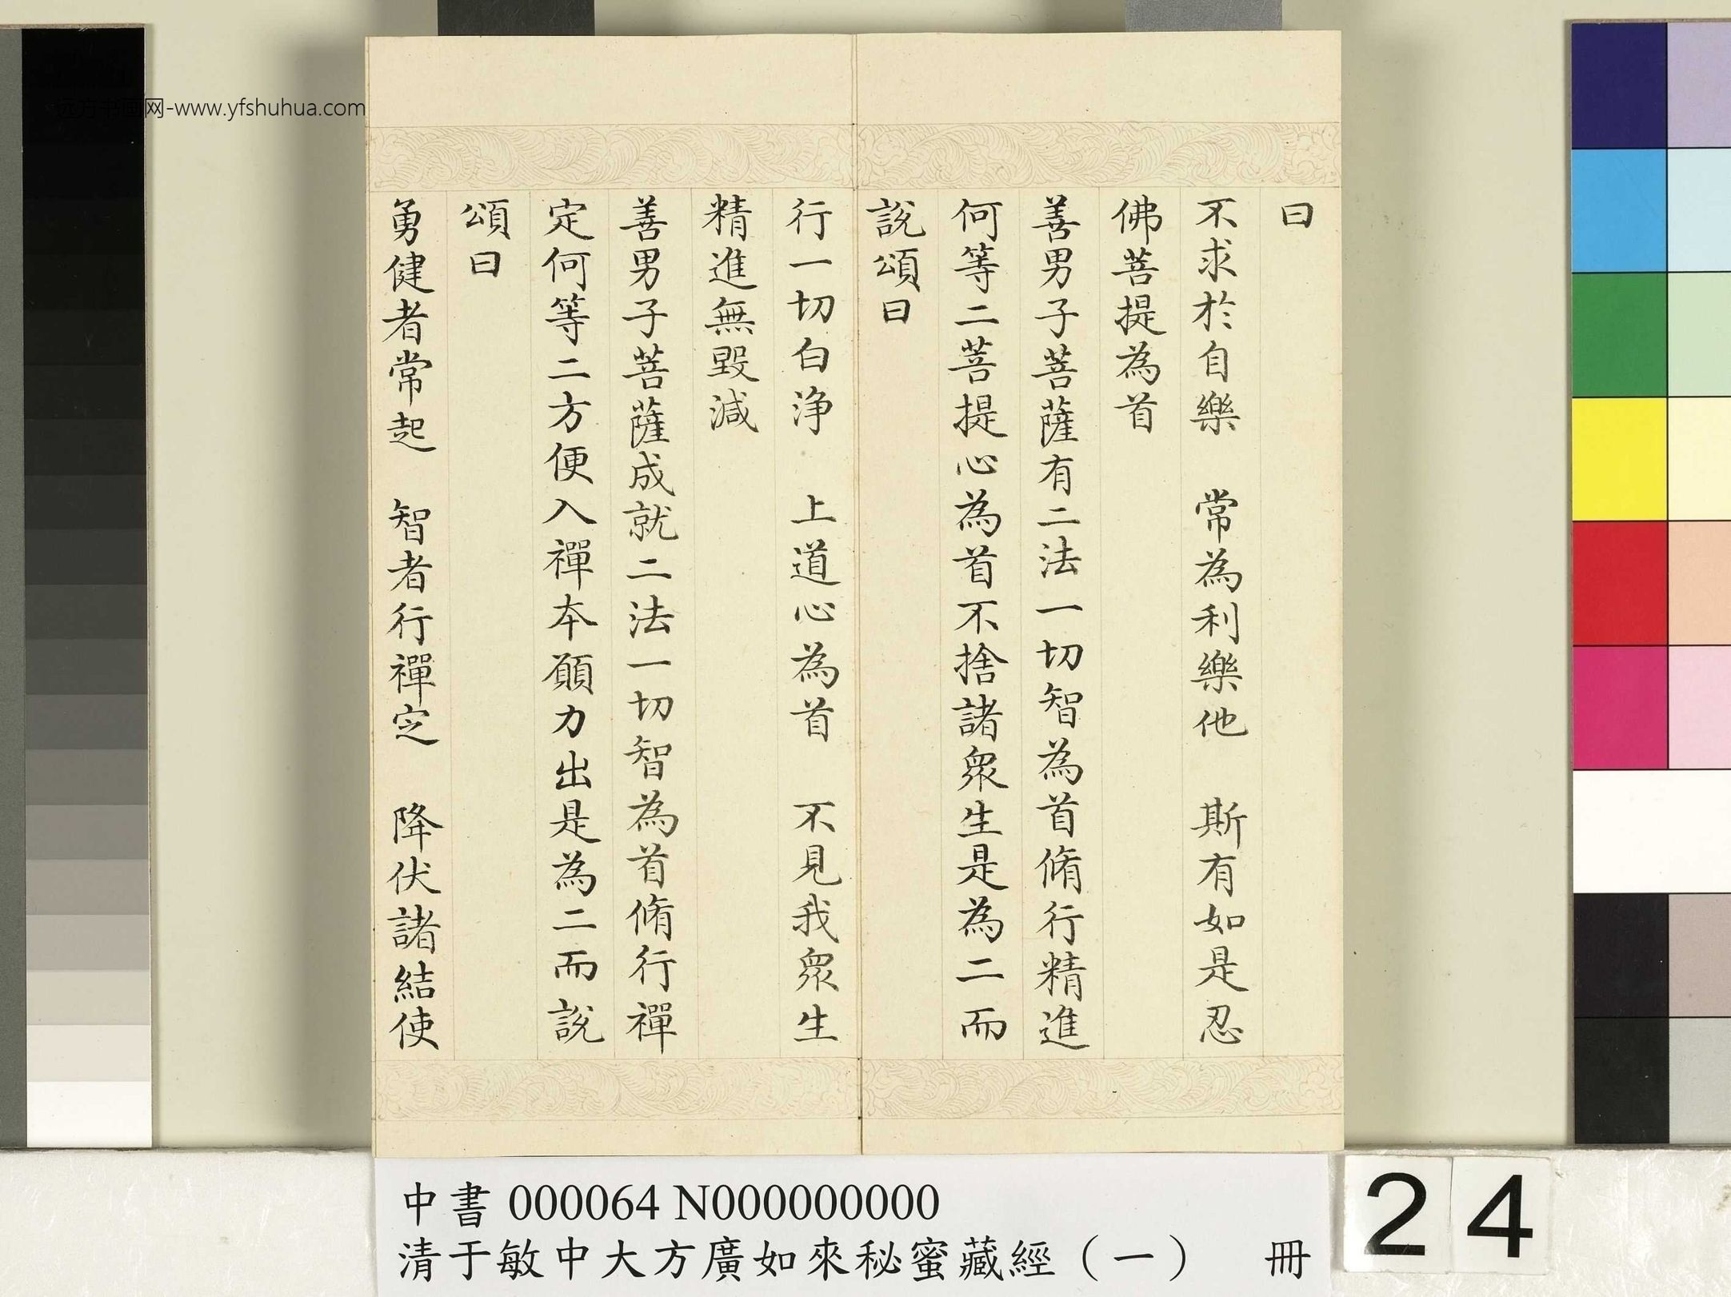 曰
不求於自樂　常為利樂他　斯有如是忍
佛菩提為首
善男子菩薩有二法一切智為首脩行精進
何等二菩提心為首不捨諸衆生是為二而
說頌曰
行一切白淨　上道心為首　不見我衆生
精進無毀減
善男子菩薩成就二法一切智為首脩行禪
定何等二方便入禪本願力出是為二而說
頌曰
勇健者常起　智者行禪定　降伏諸結使
中書 000064 N000000000
清于敏中大方廣如來秘蜜藏經（一）　冊
24
远方书画网-www.yfshuhua.com